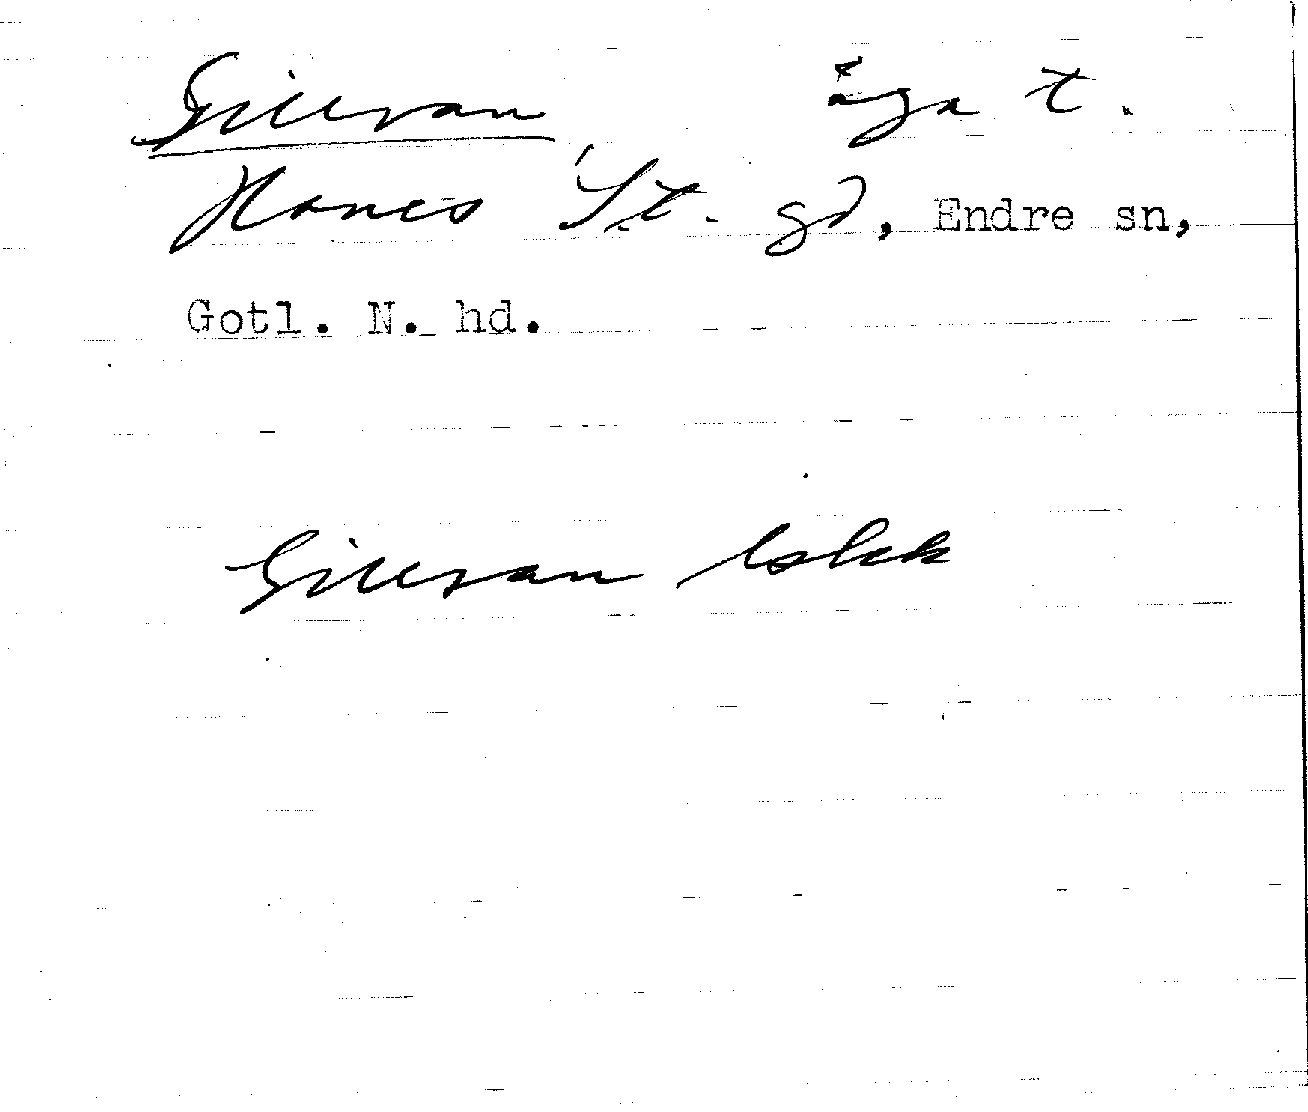 Gillvan äga t.
Hanes St. gd, Endre sn,
Gotl. N. hd.
Gillvan